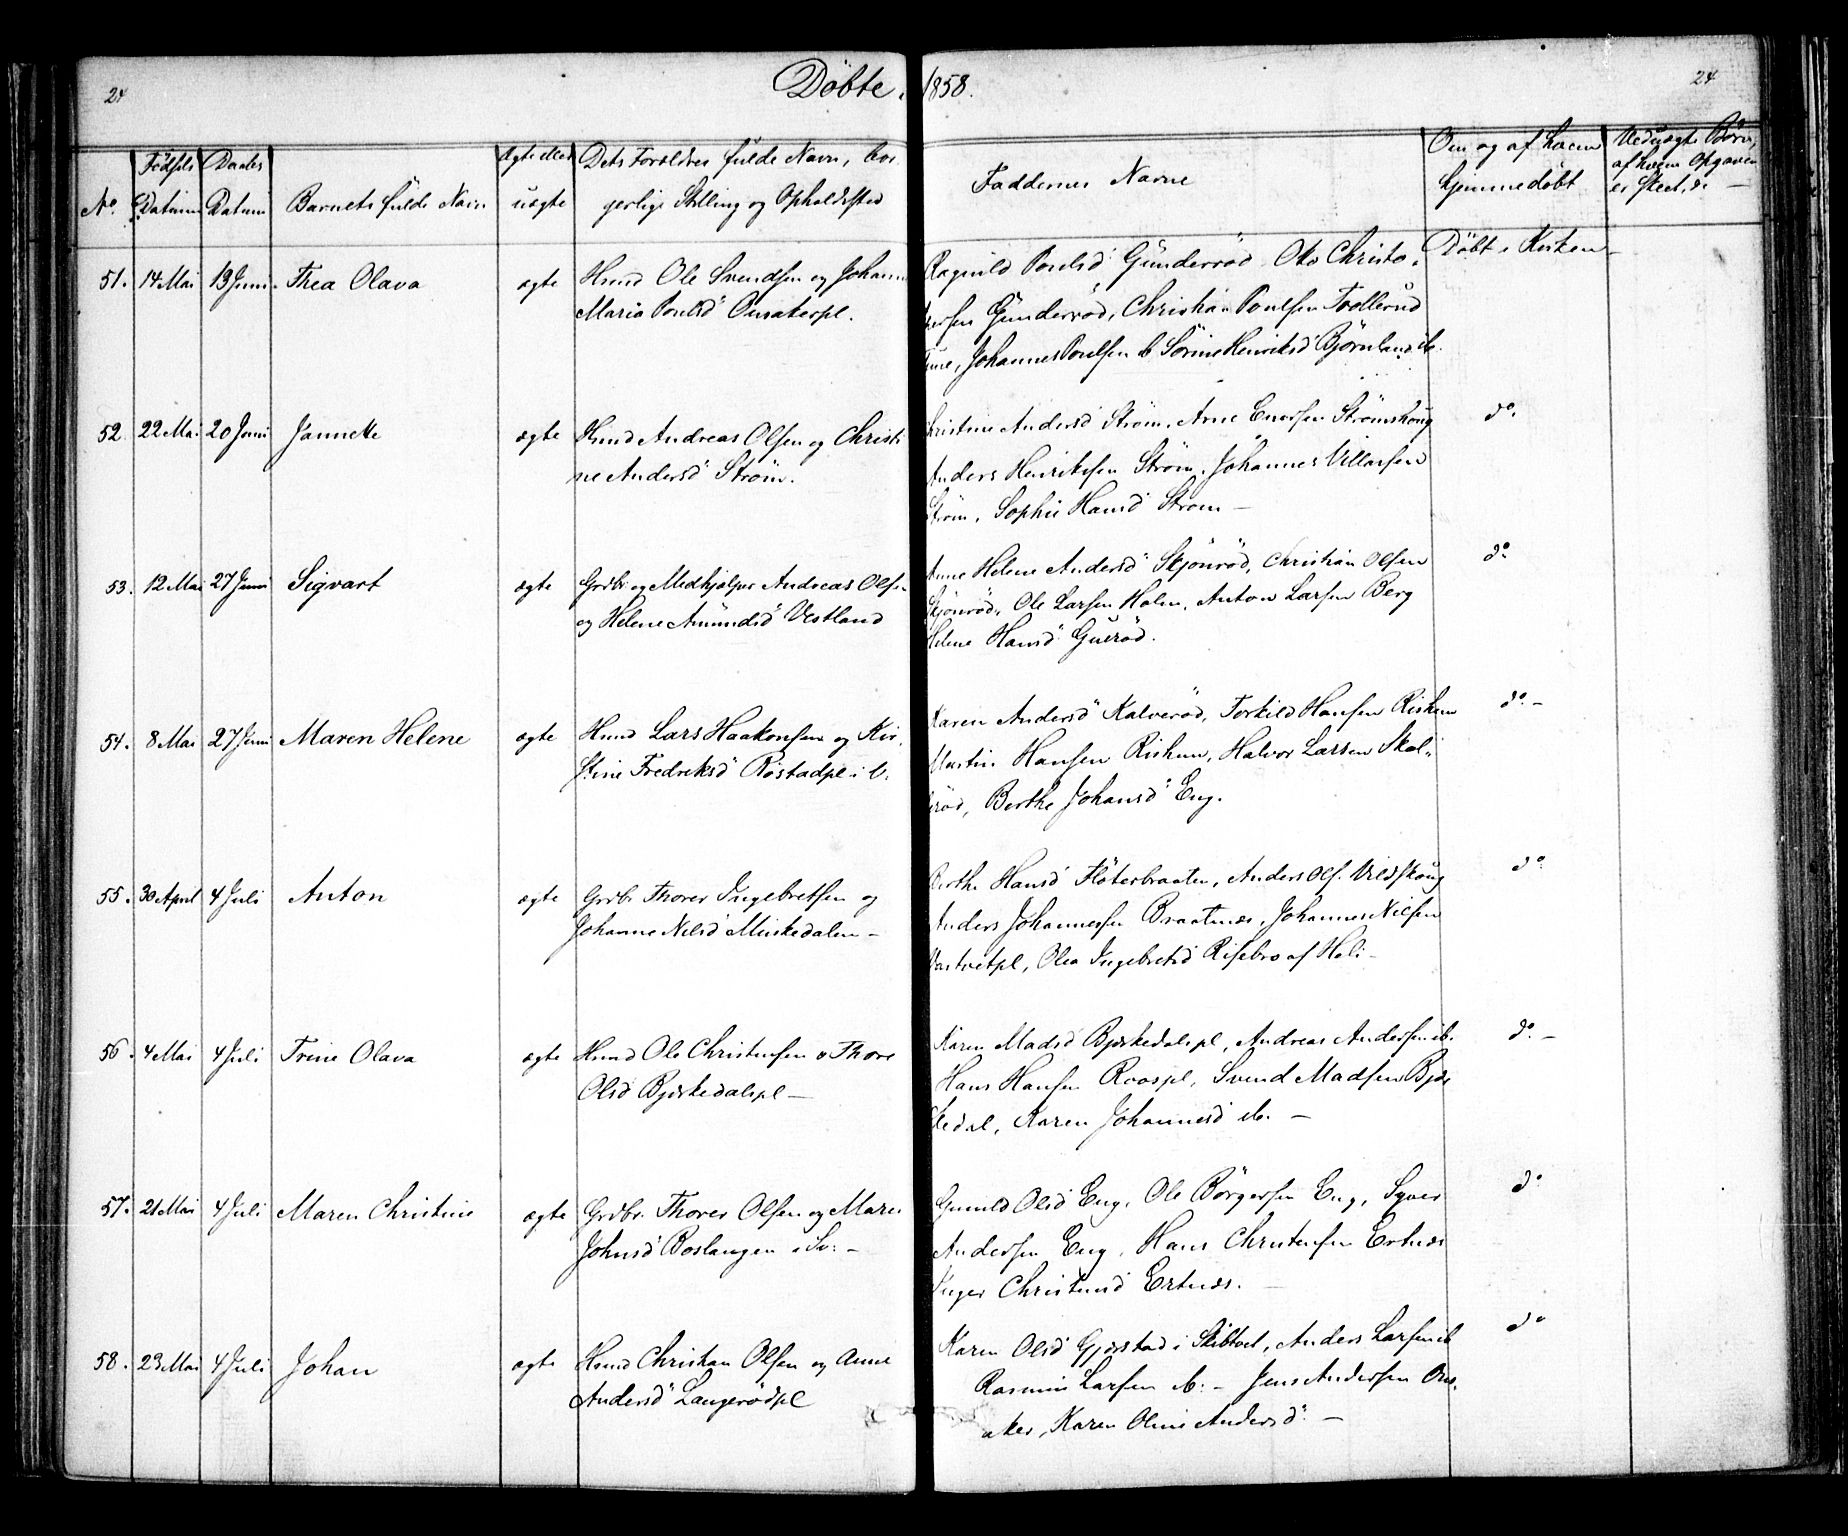 24
Döbte. 1858.
24
No.
Födsels Datum
Daabs Datum
Barnets fulde Navn
Ægte eller uægte
Dets Forældres fulde Navn, bor-
gerlige Stilling og Opholdssted
Faddernes Navne
Om og af hvem
hjemmedöbt
Ved uægte Börn,
af hvem Opgaven
er skeet, &c. —
51. 14 Mai 13 Juni Thea Olava ægte Hmd Ole Svendsen og Johanne
Maria Poulsd Ousakerpl.
Ragnild Poulsd Gunderröd Ole Christo-
fersen Gunderröd, Christian Poulsen
Tune, Johannes Poulsen ib Sörine Henriksd Björnland ib.
Döbt i Kirken —
52. 22 Mai 20 Juni Janneke ægte Hmd Andreas Olsen og Christi
ne Andersd Ström.
Christine Andersd Ström, Arne Enersen Strömskoug
Anders Henriksen Ström, Johannes Villarsen
Ström, Sophie Hansd Ström —
do.
53. 12 Mai 27 Juni Sigvart ægte Grdbr og Medhjælper Andreas Olsen
og Helene Amundsd Vestland
Anne Helene Andersd Skjönröd, Christian Olsen
Skjönröd, Ole Larsen Holm, Anton Larsen Berg
Helene Hansd Gueröd.
do.
54. 8 Mai 27 Juni Maren Helene ægte Hmd Lars Haakonsen og Kir-
stine Fredriksd Röstadpl i V.
Karen Andersd Kalveröd, Torkild Hansen Riskum
Martin Hansen Riskum, Halvor Larsen Skal-
leröd, Berthe Johansd Eng.
do. —
55. 30 April 4 Juli Anton ægte Grdbr Thorer Ingebretsen og
Johanne Nilsd Muskedalen —
Berthe Hansd Flöterbraaten, Anders Ols. Vildskoug
Anders Johannesen Braatnæs, Johannes Nilsen
Vastvetpl, Olea Ingebretsd Risebro af Holi —
do.
56. 4 Mai 4 Juli Trine Olava ægte Hmd Ole Christensen o Thore
Olsd Bjerkedalspl —
Karen Madsd Bjerkedalspl, Andreas Andersen ib.
Hans Hansen Roospl, Svend Madsen Bjer
kedal, Karen Johannesd ib. —
do. —
57. 21 Mai 4 Juli Maren Christine ægte Grdbr. Thorer Olsen og Maren
Johnsd Boslangen i Sv: —
Gunild Olsd Eng, Ole Börgersen Eng, Syver
Andersen Eng, Hans Christensen Ertnæs
Inger Christensd Ertnæs. —
do
58. 23 Mai 4 Juli Johan ægte Hmd Christian Olsen og Anne
Andersd Langerödpl
Karen Olsd Gjerstad i Skibtvet, Anders Larsen ib
Rasmus Larsen ib: — Jens Andersen Ous-
aker, Karen Oline Andersd. —
do